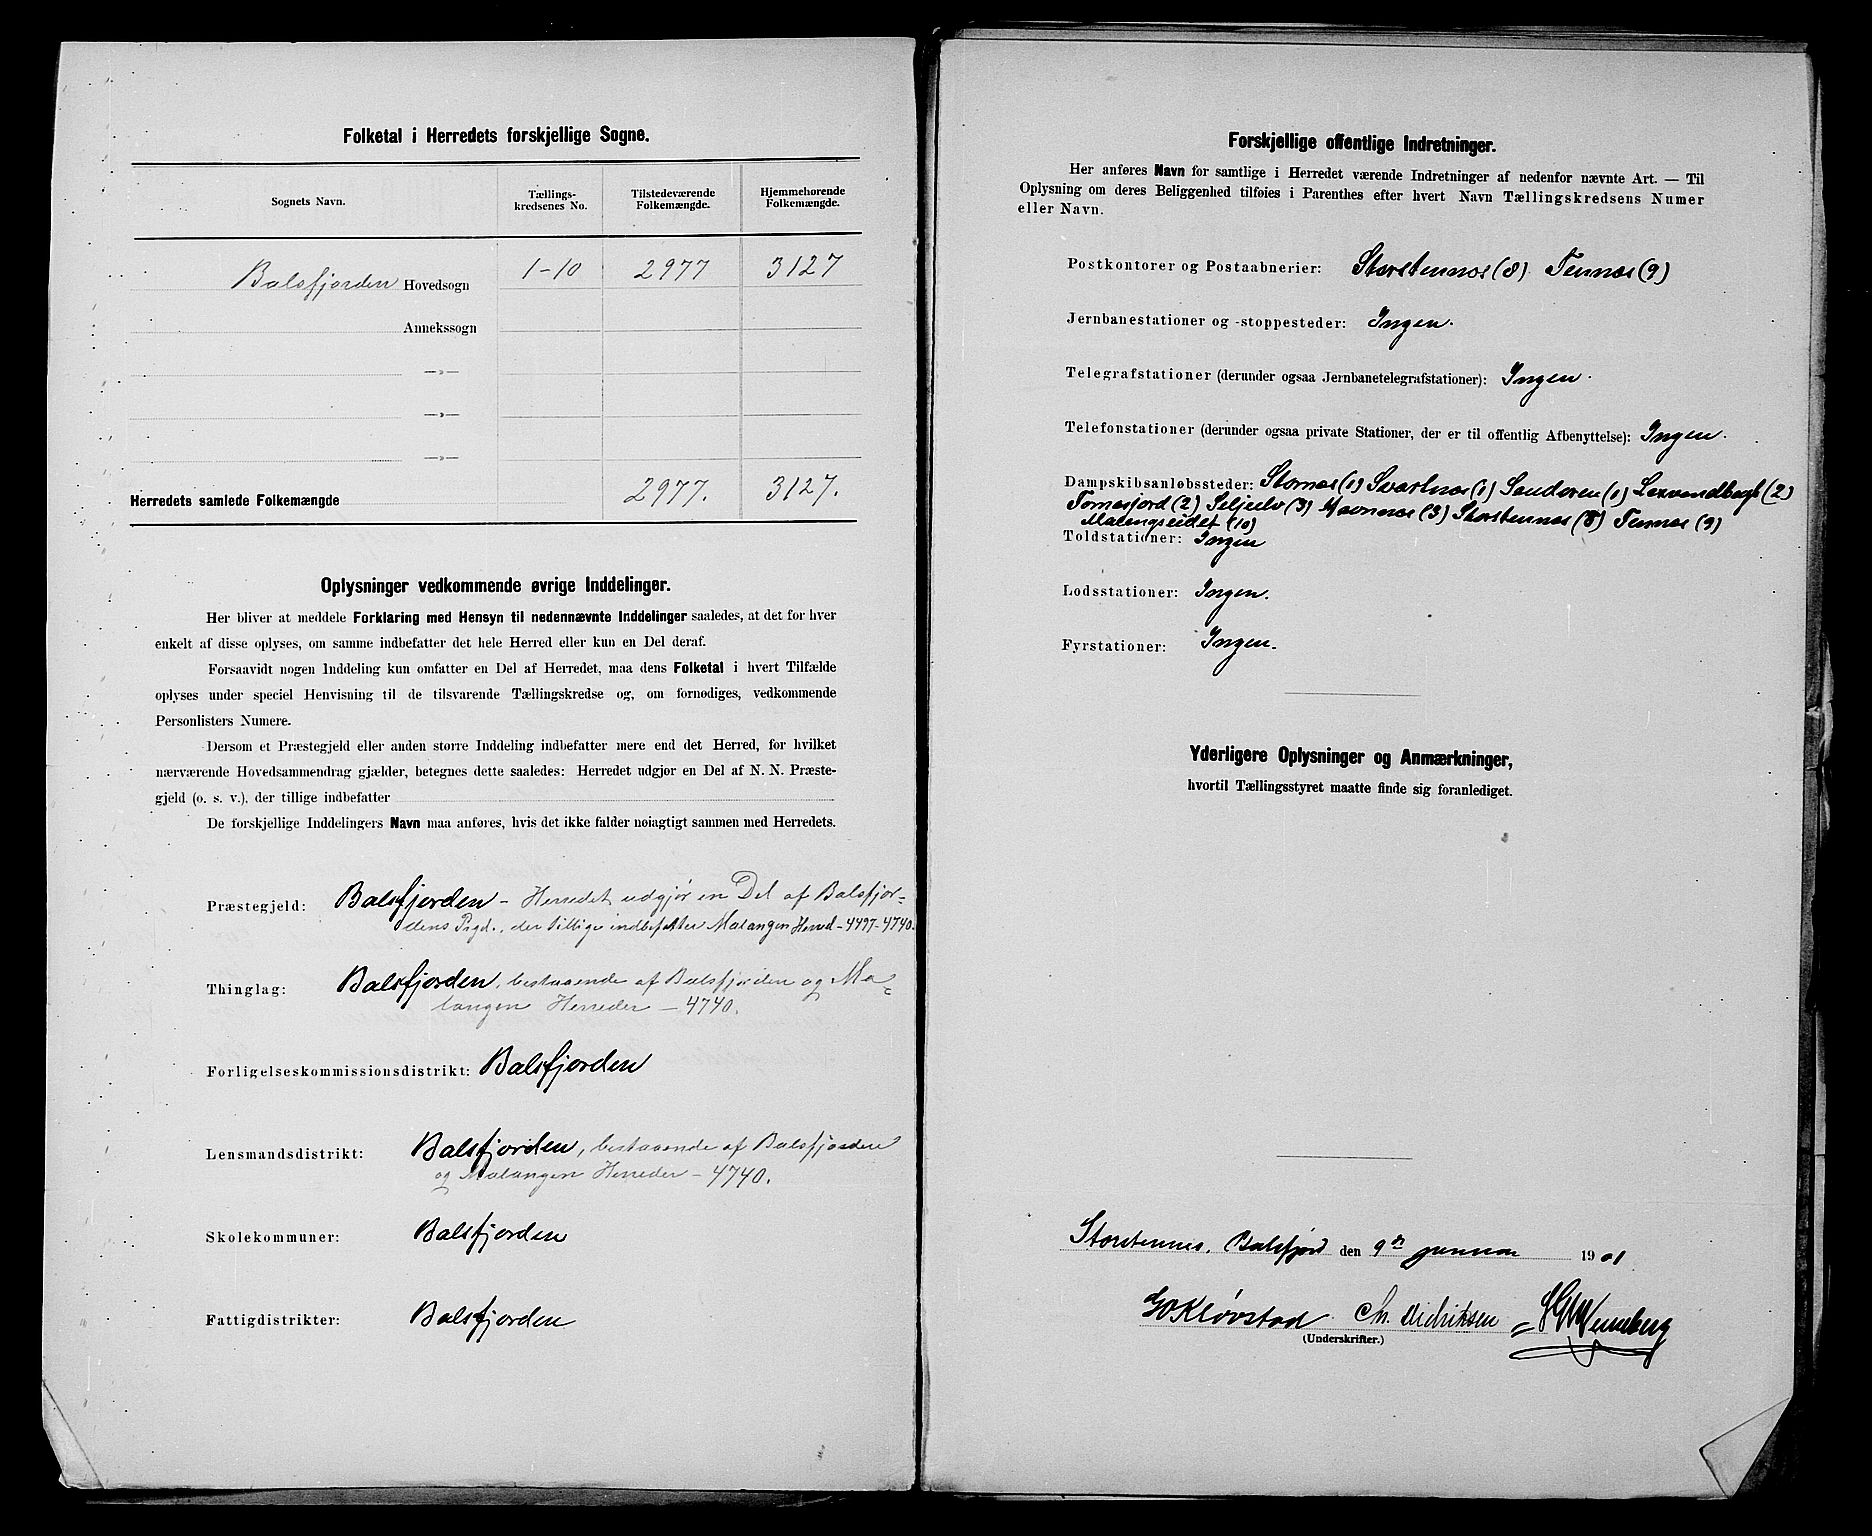 Folketal i Herredets forskjellige Sogne.
Sognets Navn.
Tællings-
kredsenes No.
Tilstedeværende
Folkemængde.
Hjemmehørende
Folkemængde.
Balsfjorden Hovedsogn 1-10 2977 3127
Annekssogn
—»—
—»—
—»—
Herredets samlede Folkemængde 2977. 3127.
Oplysninger vedkommende øvrige Inddelinger.
Her bliver at meddele Forklaring med Hensyn til nedennævnte Inddelinger saaledes, at det for hver
enkelt af disse oplyses, om samme indbefatter det hele Herred eller kun en Del deraf.
Forsaavidt nogen Inddeling kun omfatter en Del af Herredet, maa dens Folketal i hvert Tilfælde
oplyses under speciel Henvisning til de tilsvarende Tællingskredse og, om fornødiges, vedkommende
Personlisters Numere.
Dersom et Præstegjeld eller anden større Inddeling indbefatter mere end det Herred, for hvilket
nærværende Hovedsammendrag gjælder, betegnes dette saaledes: Herredet udgjør en Del af N. N. Præste-
gjeld (o. s. v.), der tillige indbefatter
De forskjellige Inddelingers Navn maa anføres, hvis det ikke falder nøiagtigt sammen med Herredets.
Præstegjeld: Balsfjorden - Herredet udgjør en Del af Balsfjor-
dens Prgd., der tillige indbefatter Malangen Herred - 4497-4740.
Thinglag: Balsfjorden, bestaaende af Balsfjorden og Ma-
langen Herreder - 4740.
Forligelseskommissionsdistrikt: Balsfjorden
Lensmandsdistrikt: Balsfjorden, bestaaende af Balsfjorden
og Malangen Herreder - 4740.
Skolekommuner: Balsfjorden
Fattigdistrikter: Balsfjorden
Forskjellige offentlige Indretninger.
Her anføres Navn for samtlige i Herredet værende Indretninger af nedenfor nævnte Art. — Til
Oplysning om deres Beliggenhed tilføies i Parenthes efter hvert Navn Tællingskredsens Numer
eller Navn.
Postkontorer og Postaabnerier: Storstennes (8) Tennes (9)
Jernbanestationer og -stoppesteder: Ingen.
Telegrafstationer (derunder ogsaa Jernbanetelegrafstationer): Ingen.
Telefonstationer (derunder ogsaa private Stationer, der er til offentlig Afbenyttelse): Ingen.
Dampskibsanløbssteder: Stornes (1) Svartnes (1) Sandøren (1) Laxvandbugt (2)
Tomasjord (2) Seljelv (3) Havnnes (3) Storstennes (8) Tennes (9)
Malangseidet (10)
Toldstationer: Ingen
Lodsstationer: Ingen.
Fyrstationer: Ingen.
Yderligere Oplysninger og Anmærkninger,
hvortil Tællingsstyret maatte finde sig foranlediget.
Storstennes, Balsfjord den 9de januar 1901
Kløvstad Chr. Didriksen
(Underskrifter.)